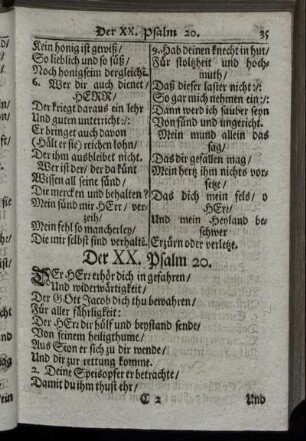 Der XX. Psalm 20. 35
Kein honig ist gewiß/
So lieblich und so süß/
Noch honigseim dergleiche.
6. Wer dir auch dienet/
HERR/
Der kriegt daraus ein lehr
Und guten unterricht:/:
Er bringet auch davon
(Hält er sie) reichen lohn/
Der ihm ausbleibet nicht.
Wer ist der/ der da künt
Wissen all seine sünd/
Die mercken und behalten?
Mein sünd mir HErr/ ver-
zeih/
Mein fehl so mancherley/
Die mir selbst sind verhalte.
9. Hab deinen knecht in hut/
Für stoltzheit und hoch-
muth/
Daß dieser laster nicht:/:
So gar mich nehmen ein:/:
Dann werd ich sauber seyn
Von sünd und ungericht.
Mein mund allein das
sag/
Das dir gefallen mag/
Mein hertz ihm nichts vor-
setze/
Das dich mein fels/ o
HErr/
Und mein Heyland be-
schwer
Erzürn oder verletze.
Der XX. Psalm 20.
DEr HErr erhör dich in gefahren/
Und widerwärtigkeit/
Der GOtt Jacob dich thu bewahren/
Für aller fährligkeit:
Der HErr dir hülf und beystand sende/
Von seinem heiligthume/
Aus Sion er sich zu dir wende/
Und dir zur rettung komme.
2. Deine Speisopfer er betrachte/
Damit du ihm thust ehr/
C 2 Und